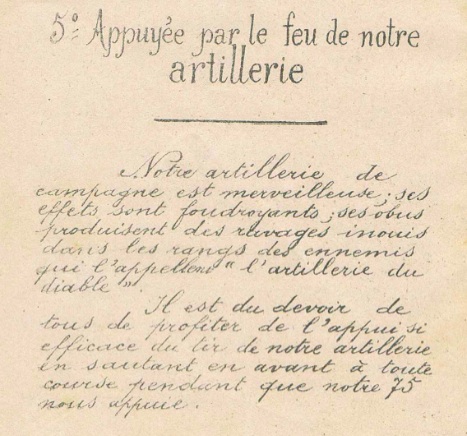 5º: Appuyée par le feu de notre
artillerie
Notre artillerie de
campagne est merveilleuse ; ses
effets sont foudroyants ; ses obus
produisent des ravages inouis
dans les rangs des ennemis
qui l'appellent " l'artillerie du
diable ".
Il est du devoir de
tous de profiter de l'appui si
efficace du tir de notre artillerie
en sautant en avant à toute
course pendant que notre 75
nous appuie.